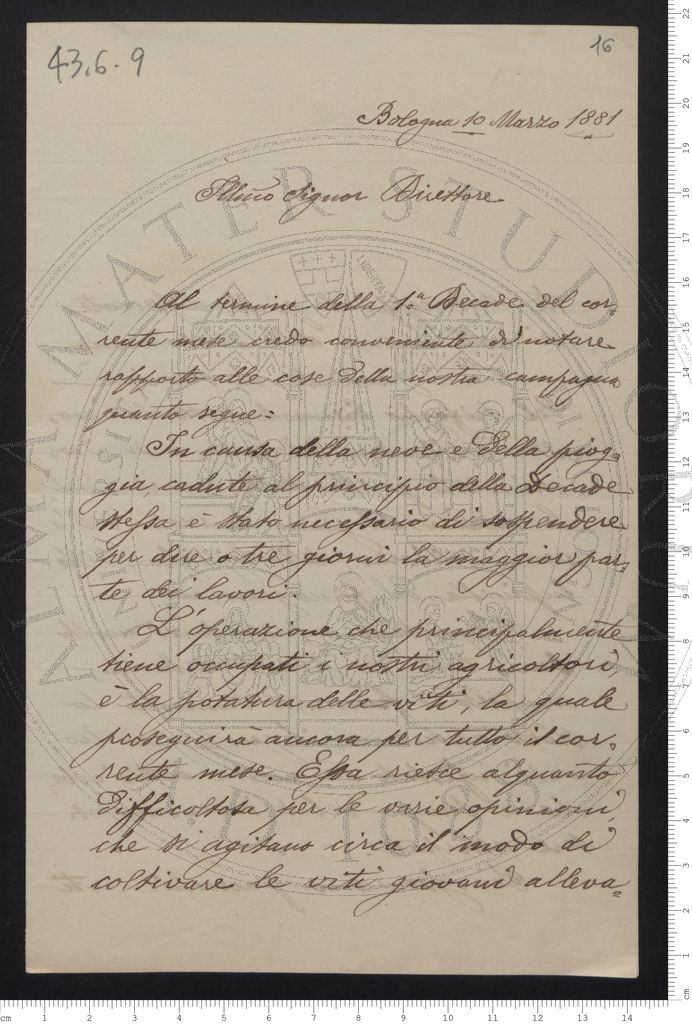 43.6.9
16
Bologna 10 Marzo 1881
Illmo Signor Direttore
Al termine della 1.a Decade del cor
rente mese credo conveniente di notare
rapporto alle cose della nostra campagna
quanto segue:
In causa della neve e della piog=
gia, cadute al principio della Decade
stessa è stato necessario di sospendere
per due o tre giorni la maggior par=
te dei lavori.
L'operazione che principalmente
tiene occupati i nostri agricoltori,
è la potatura delle viti, la quale
proseguirà ancora per tutto il cor=
rente mese. Essa riesce alquanto
difficoltosa per le varie opinioni,
che si agitano circa il modo di
coltivare le viti giovani alleva=
ALMA MATER STUDIORUM
A.D. 1088
LIBERTAS